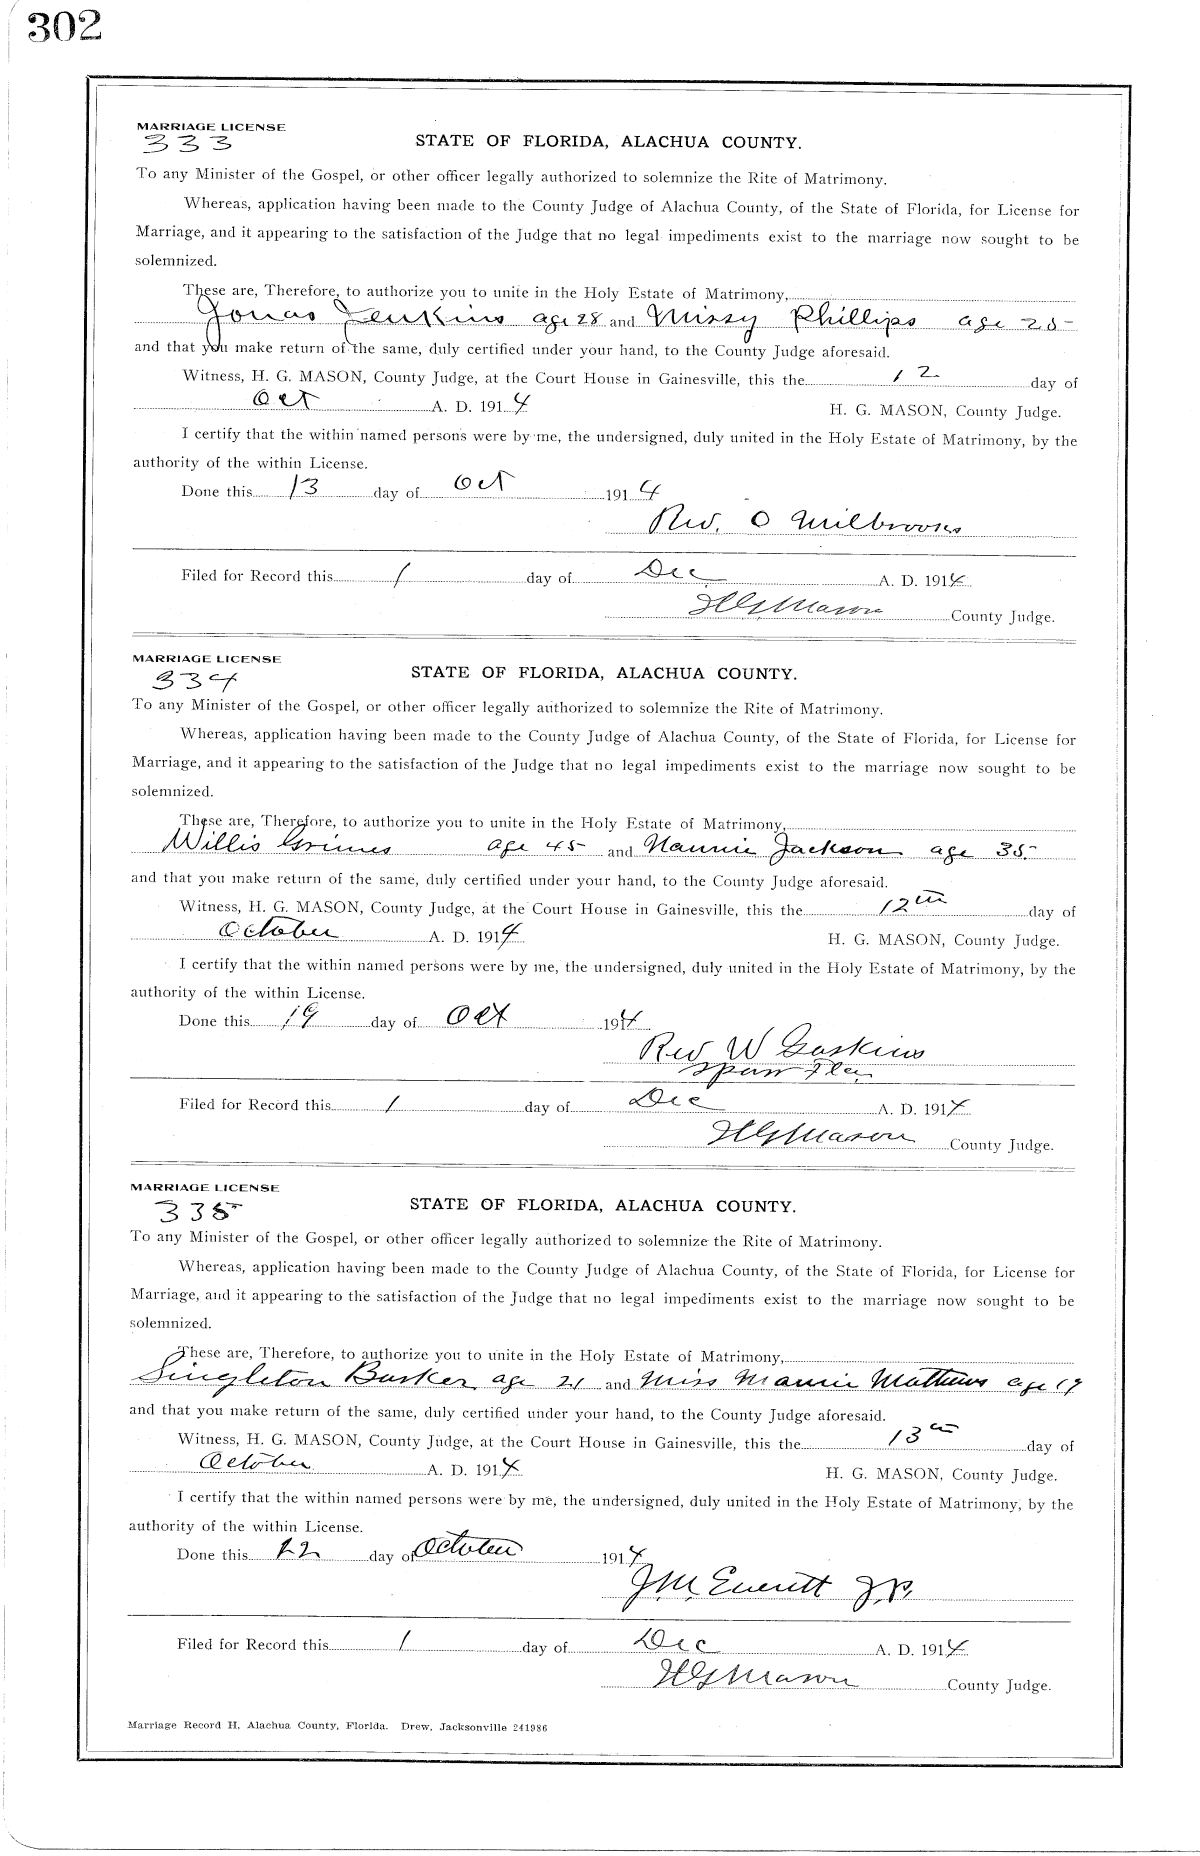 302
MARRIAGE LICENSE
333
STATE OF FLORIDA, ALACHUA COUNTY.
To any Minister of the Gospel, or other officer legally authorized to solemnize the Rite of Matrimony.
Whereas, application having been made to the County Judge of Alachua County, of the State of Florida, for License for
Marriage, and it appearing to the satisfaction of the Judge that no legal impediments exist to the marriage now sought to be
solemnized.
These are, Therefore, to authorize you to unite in the Holy Estate of Matrimony,
Jonas Jenkins age 28 and Missy Phillips age 25
and that you make return of the same, duly certified under your hand, to the County Judge aforesaid.
Witness, H. G. MASON, County Judge, at the Court House in Gainesville, this the 12 day of
Oct A. D. 1914 H. G. MASON, County Judge.
I certify that the within named persons were by me, the undersigned, duly united in the Holy Estate of Matrimony, by the
authority of the within License.
Done this 13 day of Oct 1914
Rev. O Milbrooks
Filed for Record this 1 day of Dec A. D. 1914
H G Mason County Judge.
MARRIAGE LICENSE
334
STATE OF FLORIDA, ALACHUA COUNTY.
To any Minister of the Gospel, or other officer legally authorized to solemnize the Rite of Matrimony.
Whereas, application having been made to the County Judge of Alachua County, of the State of Florida, for License for
Marriage, and it appearing to the satisfaction of the Judge that no legal impediments exist to the marriage now sought to be
solemnized.
These are, Therefore, to authorize you to unite in the Holy Estate of Matrimony,
Willis Grimes age 45 and Nannie Jackson age 35
and that you make return of the same, duly certified under your hand, to the County Judge aforesaid.
Witness, H. G. MASON, County Judge, at the Court House in Gainesville, this the 12th day of
October A. D. 1914 H. G. MASON, County Judge.
I certify that the within named persons were by me, the undersigned, duly united in the Holy Estate of Matrimony, by the
authority of the within License.
Done this 19 day of Oct 1914
Rev W Gaskins
Fla
Filed for Record this 1 day of Dec A. D. 1914
H G Mason County Judge.
MARRIAGE LICENSE
335
STATE OF FLORIDA, ALACHUA COUNTY.
To any Minister of the Gospel, or other officer legally authorized to solemnize the Rite of Matrimony.
Whereas, application having been made to the County Judge of Alachua County, of the State of Florida, for License for
Marriage, and it appearing to the satisfaction of the Judge that no legal impediments exist to the marriage now sought to be
solemnized.
These are, Therefore, to authorize you to unite in the Holy Estate of Matrimony,
Singleton Basker age 21 and Miss Mamie Mathews age 19
and that you make return of the same, duly certified under your hand, to the County Judge aforesaid.
Witness, H. G. MASON, County Judge, at the Court House in Gainesville, this the 13th day of
October A. D. 1914 H. G. MASON, County Judge.
I certify that the within named persons were by me, the undersigned, duly united in the Holy Estate of Matrimony, by the
authority of the within License.
Done this 22 day of October 1914
J. M. Everitt J.P.
Filed for Record this 1 day of Dec A. D. 1914
H G Mason County Judge.
Marriage Record H, Alachua County, Florida. Drew, Jacksonville 241986